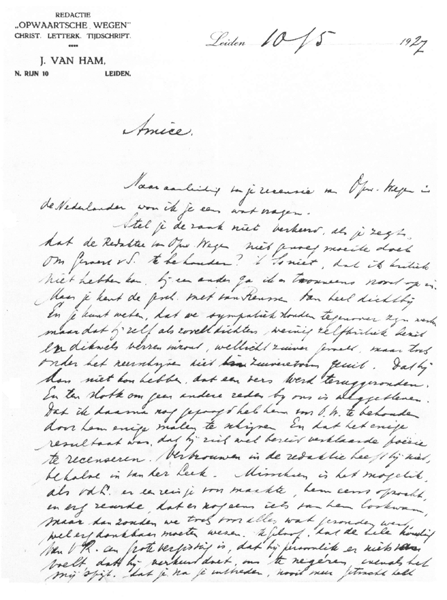 REDACTIE
„OPWAARTSCHE WEGEN"
CHRIST. LETTERK. TIJDSCHRIFT.
J. VAN HAM,
N. RIJN 10 LEIDEN.
Leiden 10/5 1927
Amice.
Naar aanleiding van je recensie van Opw. Wegen in
de Nederlander wou ik je eens wat vragen.
Stel je de zaak niet verkeerd, als je zegt,
dat de Redactie van Opw. Wegen niet genoeg moeite doet
om Gerard v.d. S. te behouden? 't Is niet, dat ik kritiek
niet hebben kan, bij een ander ga ik er trouwens nooit op in.
Maar je kent de met van heel dichtbij
En je kunt weten, dat we sympathiek stonden tegenover zijn werk
maar dat hij zelf als zoovele dichters, weinig zelfkritiek bezit
en dikwels verzen inzond, wellicht zuiver gevoeld, maar toch
onder het neerschrijven niet zuiver geuit. Dat hij
kon niet hebben, dat een vers werd teruggezonden.
En ten slotte om geen andere reden bij ons is weggebleven.
Dat ik daarna nog gepoogd heb hem voor O.W. te behouden
door hem enige malen te schrijven En dat het enige
resultaat was, dat hij zich wel bereid verklaarde poëzie
te recenseren. Vertrouwen in de redactie heeft hij niet,
behalve in van der Leek. Misschien is het mogelijk
als v.d.L. er een reisje voor maakte, hem eens opzocht,
en erg zeurde, dat er nog eens iets van hem loskwam,
maar dan zouden we toch voor alles, wat gezonden werd
wel erg dankbaar moeten wezen. Ik geloof, dat de hele houding
van V.R. een grote vergissing is, dat hij persoonlijk er niets
voelt, dat hij verkeerd doet, om te negéren, evenals het
mij spijt, dat je na je uittreden, nooit meer